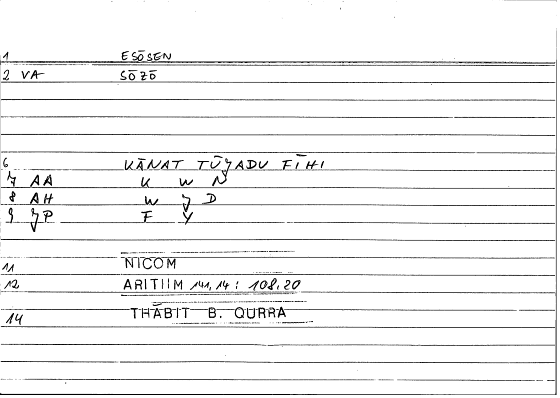 1 ESŌSEN
2 VA SŌZŌ
6 KĀNAT TŪJADU FĪHI
7 AA K W N
8 AH W J D
9 JP F Y
11 NICOM
12 ARITIIM 141,14 : 108,20
14 THĀBIT B. QURRA